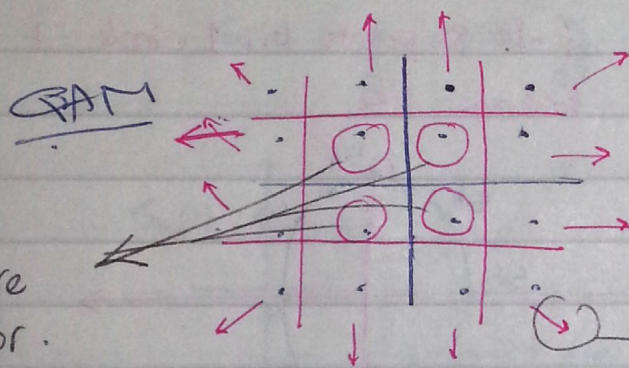 QAM
re
or.